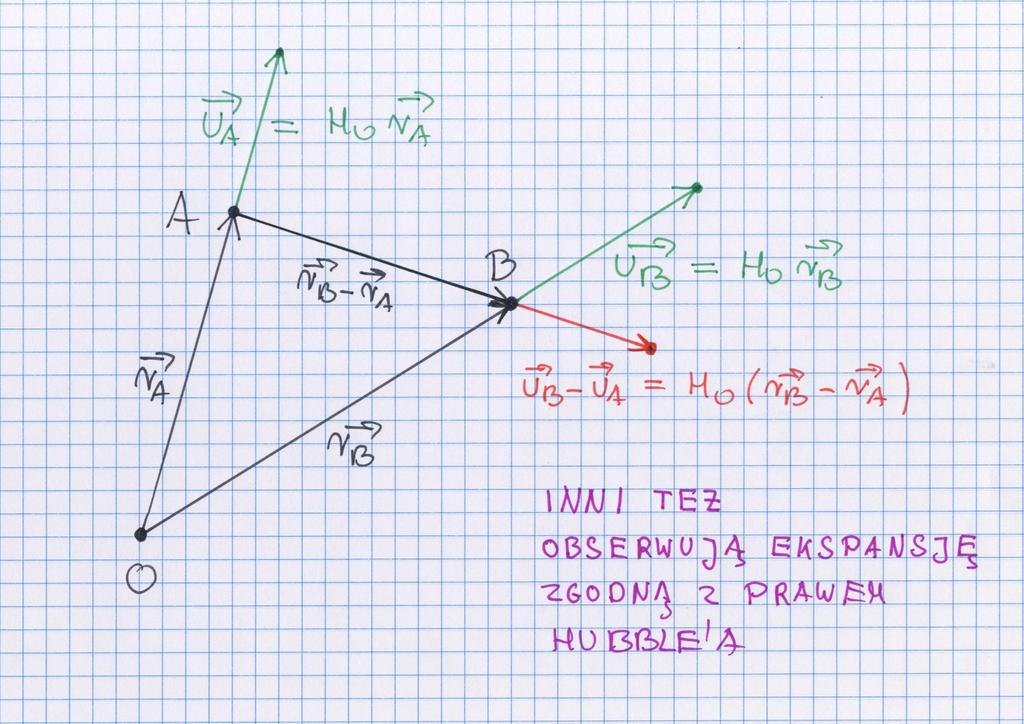 U⃗_A = H_0 r⃗_A
A
B
r⃗_B - r⃗_A
U⃗_B = H_0 r⃗_B
r⃗_A
U⃗_B - U⃗_A = H_0 (r⃗_B - r⃗_A)
r⃗_B
INNI TEŻ
OBSERWUJĄ EKSPANSJĘ
ZGODNĄ Z PRAWEM
HUBBLE'A
O